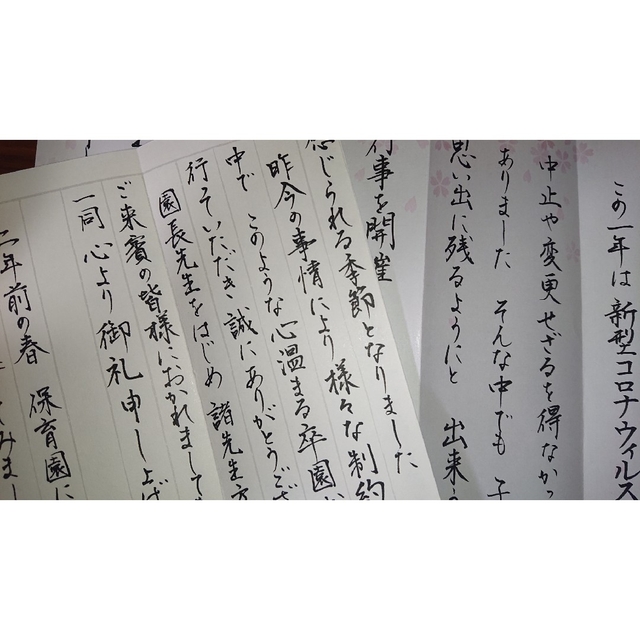 この一年は新型コロナウィルス
中止や変更せざるを得なかっ
ありました そんな中でも 子
思い出に残るようにと 出来う
行事を開催
感じられる季節となりました
昨今の事情により様々な制約
中で このような心温まる卒園
行っていただき誠にありがとうござ
園長先生をはじめ 諸先生方
ご来賓の皆様におかれまして
一同 心より御礼申し上げ
二年前の春 保育園に